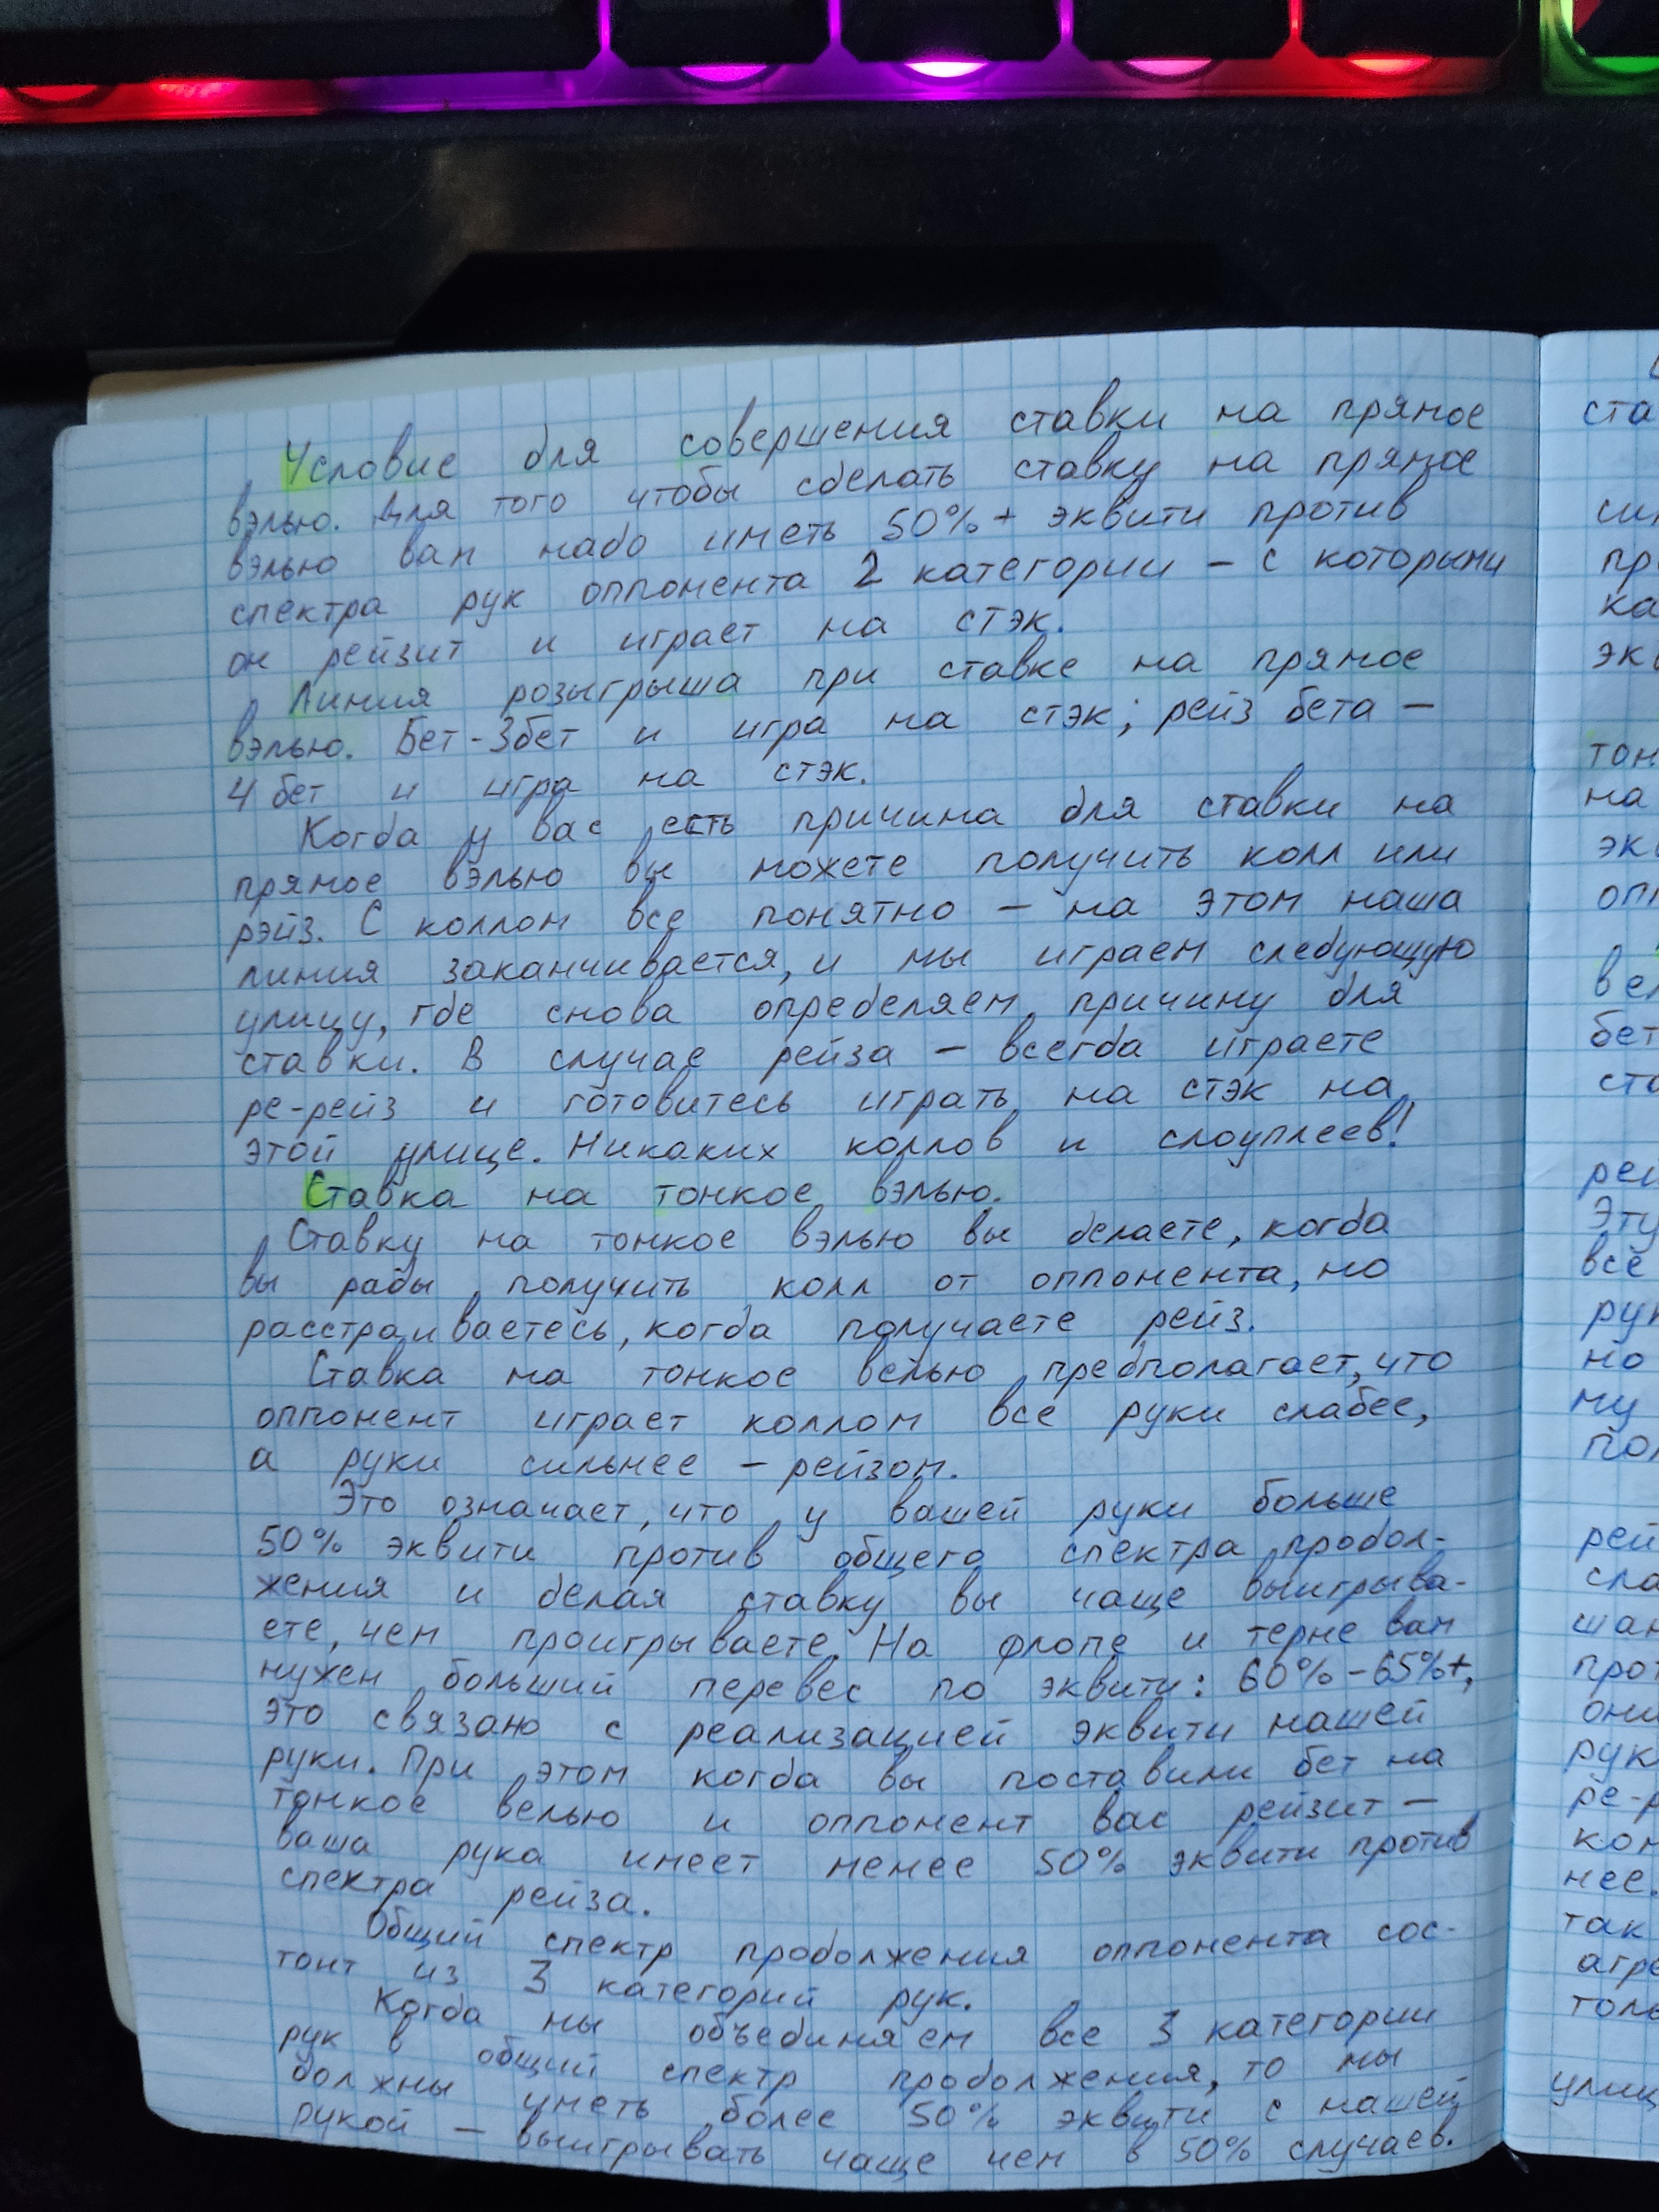 Условие для совершения ставки на прямое
вэлью. Для того чтобы сделать ставку на прямое
вэлью вам надо иметь 50%+ эквити против
спектра рук оппонента 2 категории – с которыми
он рейзит и играет на стэк.
Линия розыгрыша при ставке на прямое
вэлью. Бет-3бет и игра на стэк; рейз бета –
4бет и игра на стэк.
Когда у вас есть причина для ставки на
прямое вэлью вы можете получить колл или
рэйз. С коллом все понятно – на этом наша
линия заканчивается, и мы играем следующую
улицу, где снова определяем причину для
ставки. В случае рейза – всегда играете
ре-рейз и готовитесь играть на стэк на
этой улице. Никаких коллов и слоуплеев!
Ставка на тонкое вэлью.
Ставку на тонкое вэлью вы делаете, когда
вы рады получить колл от оппонента, но
расстраиваетесь, когда получаете рейз.
Ставка на тонкое велью предполагает, что
оппонент играет коллом все руки слабее,
а руки сильнее – рейзом.
Это означает, что у вашей руки больше
50% эквити против общего спектра продол-
жения и делая ставку вы чаще выигрыва-
ете, чем проигрываете. На флопе и терне вам
нужен больший перевес по эквити: 60%-65%+,
это связано с реализацией эквити нашей
руки. При этом когда вы поставили бет на
тонкое велью и оппонент вас рейзит –
ваша рука имеет менее 50% эквити против
спектра рейза.
Общий спектр продолжения оппонента сос-
тоит из 3 категорий рук.
Когда мы объединяем все 3 категории
рук в общий спектр продолжения, то мы
должны иметь более 50% эквити с нашей
рукой – выигрывать чаще чем в 50% случаев.
ста
пр
ка
экв
тон
на
экв
опп
вел
бет
ста
рей
Эту
все
рук
но
му
пол
рей
сла
шан
прот
они
рук
ре-р
ком
нее.
так
агре
толь
улиц